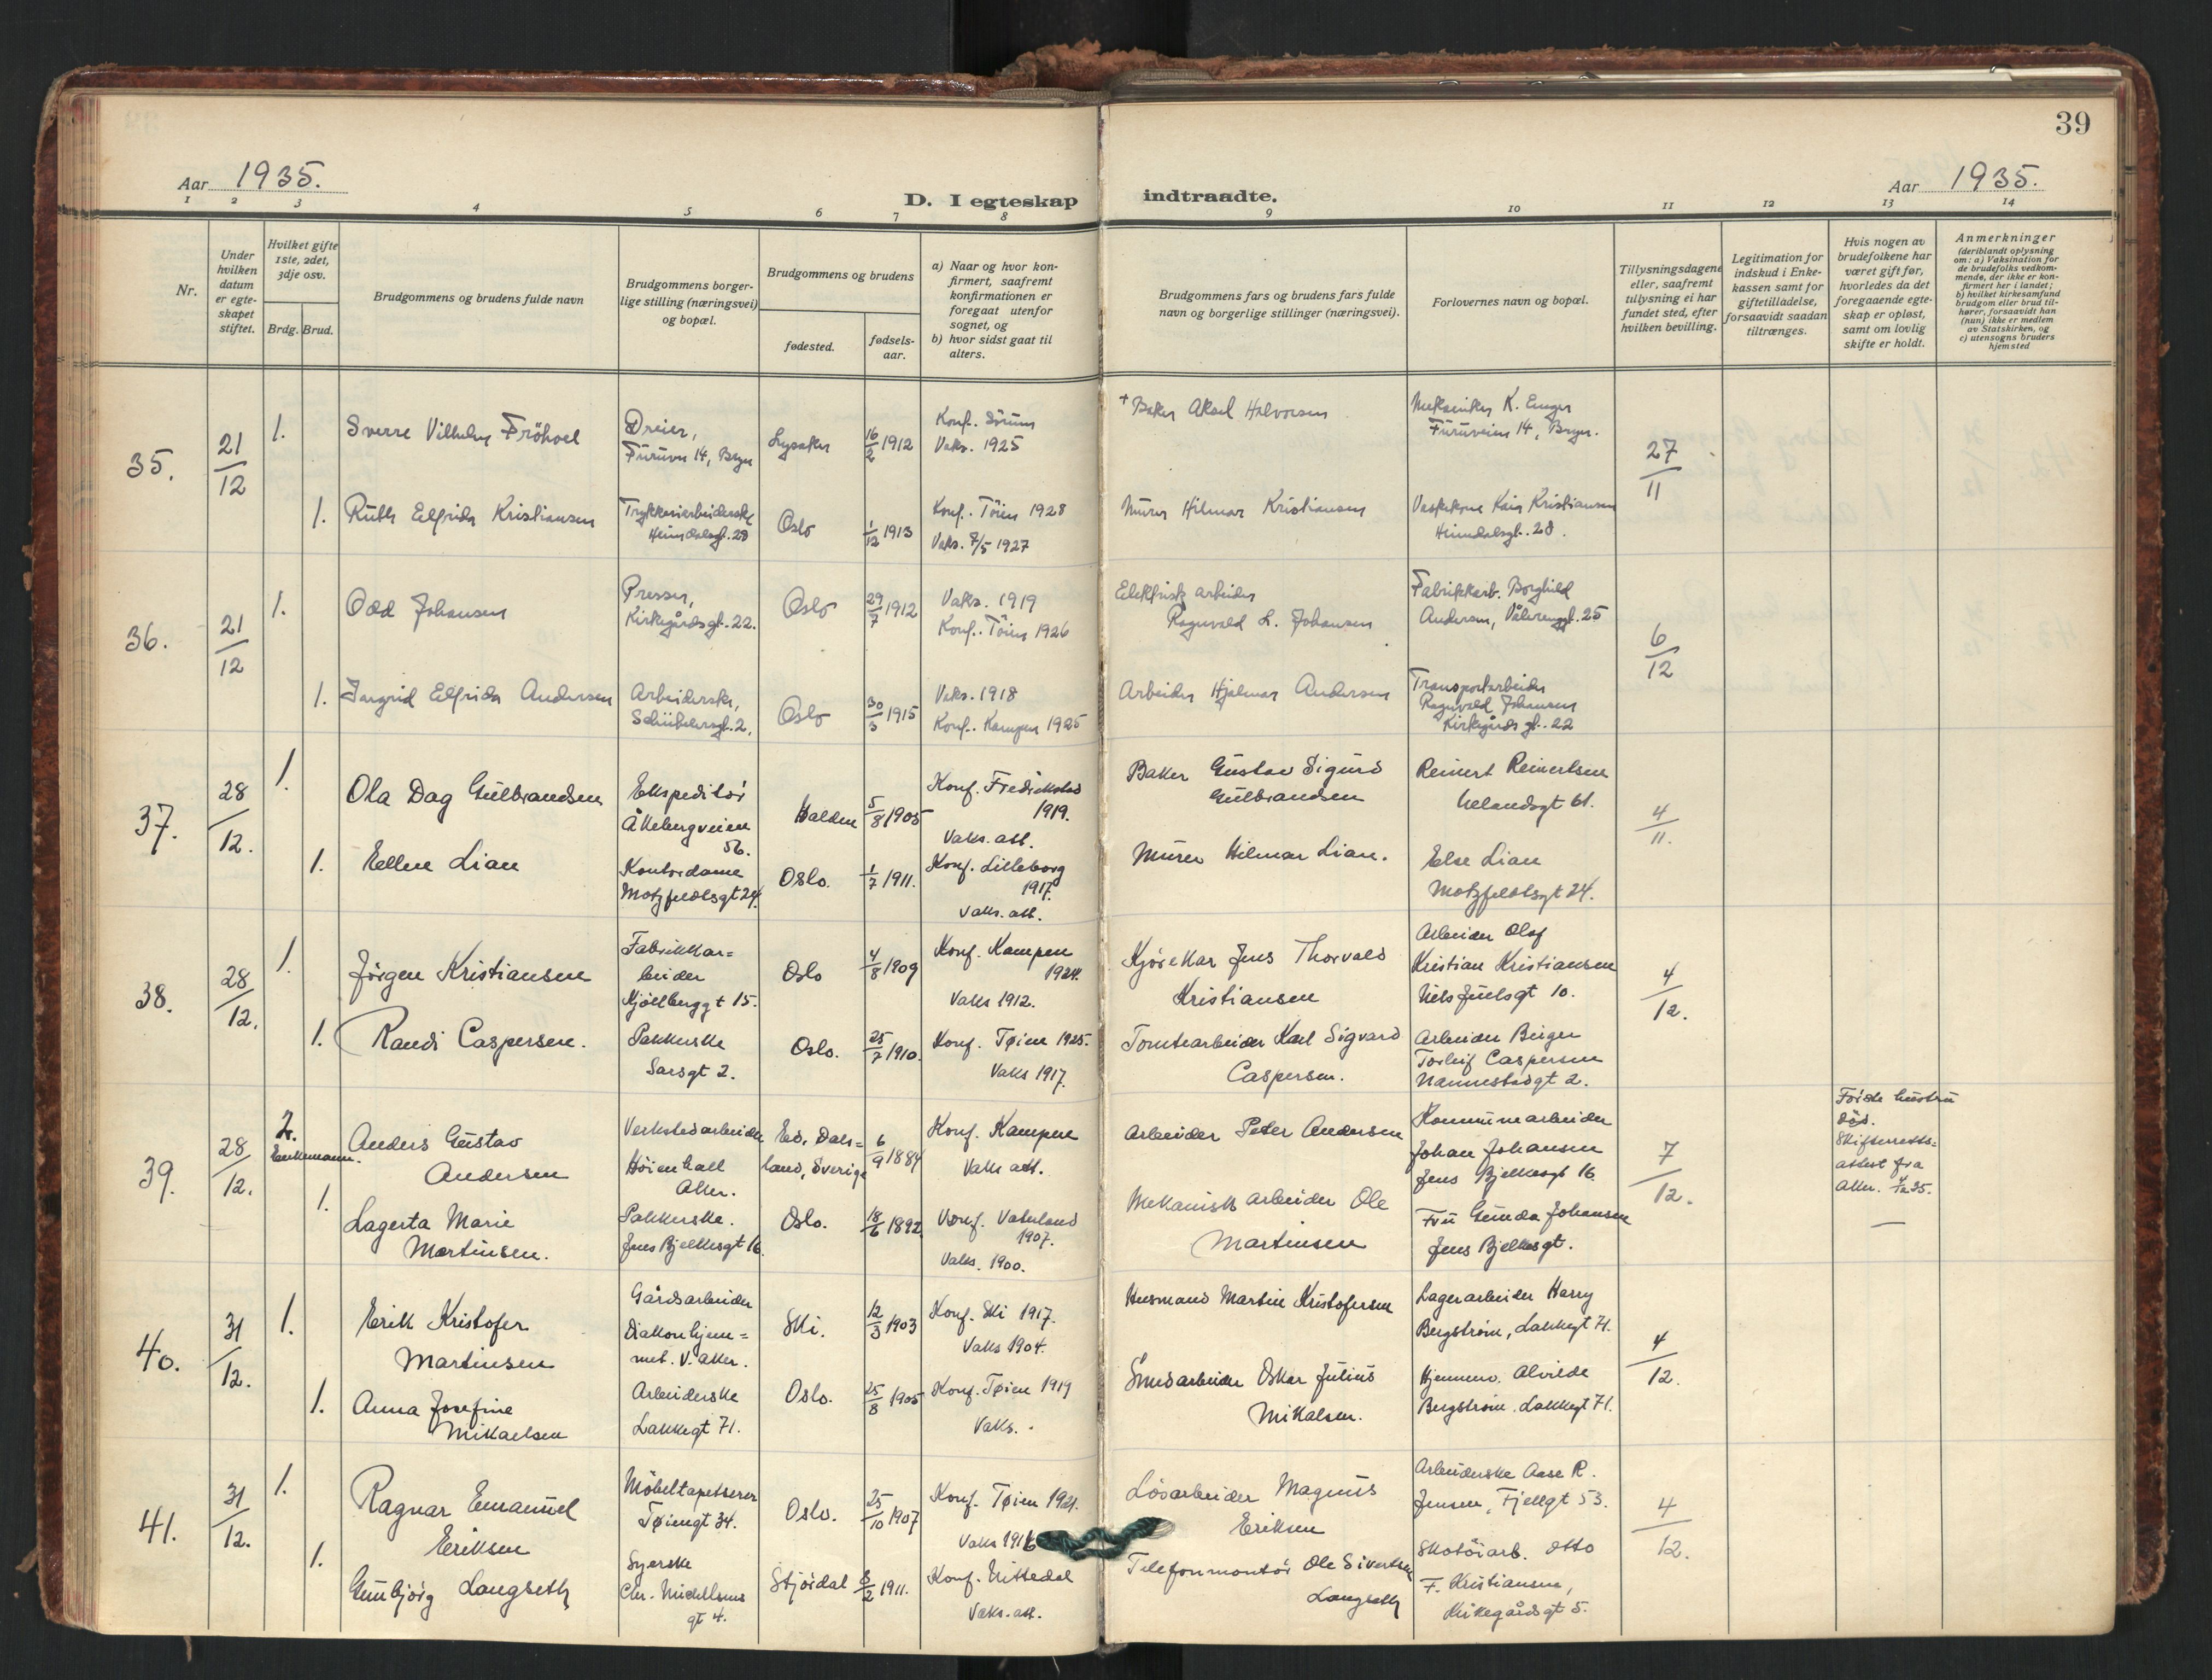 39
Aar 1935.
D. I egteskap indtraadte.
Aar 1935.
1 2 3 4 5 6 7 8 9 10 11 12 13 14
Nr.
Under
hvilken
datum
er egte-
skapet
stiftet.
Hvilket gifte
1ste, 2det,
3dje osv.
Brdg. Brud.
Brudgommens og brudens fulde navn
Brudgommens borger-
lige stilling (næringsvei)
og bopæl.
Brudgommens og brudens
fødested.
fødsels-
aar.
a) Naar og hvor kon-
firmert, saafremt
konfirmationen er
foregaat utenfor
sognet, og
b) hvor sidst gaat til
alters.
Brudgommens fars og brudens fars fulde
navn og borgerlige stillinger (næringsvei).
Forlovernes navn og bopæl.
Tillysningsdagene
eller, saafremt
tillysning ei har
fundet sted, efter
hvilken bevilling.
Legitimation for
indskud i Enke-
kassen samt for
giftetilladelse,
forsaavidt saadan
tiltrænges.
Hvis nogen av
brudefolkene har
været gift før,
hvorledes da det
foregaaende egte-
skap er opløst,
samt om lovlig
skifte er holdt.
Anmerkninger
(deriblandt oplysning
om: a) Vaksination for
de brudefolks vedkom-
mende, der ikke er kon-
firmert her i landet;
b) hvilket kirkesamfund
brudgom eller brud til-
hører, forsaavidt han
(hun) ikke er medlem
av Statskirken, og
c) utensogns bruders
hjemsted
35.
21/12
1.
Sverre Vilhelm Fröhoel
Dreier,
Furuvn 14, Bryn
Lysaker
16/2 1912
Konf. Sörum
Vaks. 1925
+ Baker Aksel Halvorsen
Mekaniker K. Enger
Furuveien 14, Bryn.
27/11
1.
Ruth Elfrida Kristiansen
Trykkeriarbeiderske
Heimdalsgt. 28
Oslo
1/12 1913
Konf. Töien 1928
Vaks. 7/5 1927
Murer Hilmar Kristiansen
Vaskekone Kaia Kristiansen
Heimdalsgt. 28.
36.
21/12
1.
Odd Johansen
Presser,
Kirkegårdsgt. 22.
Oslo
29/7 1912
Vaks. 1919
Konf. Töien 1926
Elektrisk arbeider
Ragnvald L. Johansen
Fabrikkarb. Borghild
Andersen, Vålerenggt. 25
6/12
1.
Ingrid Elfrida Andersen
Arbeiderske,
Schüblersgt. 2.
Oslo
30/3 1915
Vaks. 1918
Konf. Kampen 1925
Arbeider Hjalmar Andersen
Transportarbeider
Ragnvald Johansen
Kirkegårdsgt. 22
37.
28/12.
1.
Ola Dag Gulbrandsen
Ekspeditör
Åkebergveien
56.
Halden
5/8 1905
Konf. Fredrikstad
1919.
Vaks. att.
Baker Gustav Sigurd
Gulbrandsen
Reinert Reinertsen
Helandsgt 61.
4/11.
1.
Ellen Lian
Kontordame
Motzfeldtsgt 24.
Oslo.
1/7 1911.
Konf. Lilleborg
1917.
Vaks. att.
Murer Hilmar Lian.
Else Lian
Motzfeldtsgt 24.
38.
28/12.
1.
Jörgen Kristiansen
Fabrikkar=
beider
Kjölberggt 15.
Oslo
4/8 1909
Konf. Kampen
1924.
Vaks 1912.
Kjörekar Jens Thorvald
Kristiansen
Arbeider Olaf
Kristian Kristiansen
Nils Juelsgt 10.
4/12.
1.
Randi Caspersen.
Pakkerske
Sarsgt 2.
Oslo.
25/7 1910.
Konf. Tøien 1925.
Vaks 1917.
Tomtearbeider Karl Sigvard
Caspersen.
Arbeider Birger
Torleif Caspersen
Nannestadgt 2.
39.
28/12.
2.
Enkemann.
Anders Gustav
Andersen
Verkstedarbeider
Höienhall
Aker.
Ed, Dals=
land, Sverige
6/9 1884
Konf. Kampen
Vaks att.
Arbeider Peter Andersen
Kommunearbeider
Johan Johansen
Jens Bjelkesgt 16.
7/12.
Förste hustru
död.
Skifteretts=
attest fra
Aker.
1.
Lagerta Marie
Martinsen.
Pakkerske.
Jens Bjelkesgt 16.
Oslo.
18/6 1892
Konf. Vaterland
1907.
Vaks. 1900.
Mekanisk arbeider Ole
Martinsen
Fru Gunda Johansen
Jens Bjelkesgt.
40.
31/12.
1.
Erik Kristofer
Martinsen
Gårdsarbeider
Diakonhjem=
met. V. Aker.
Ski.
12/3 1903
Konf. Ski 1917.
Vaks 1904.
Husmand Martin Kristofersen
Lagerarbeider Harry
Bergström, Lakkegt 71.
4/12.
1.
Anna Josefine
Mikaelsen
Arbeiderske
Lakkegt 71.
Oslo.
25/8 1905
Konf. Tøien 1919
Vaks.
Smedarbeider Oskar Julius
Mikalsen.
Hjemmev. Alvilde
Bergström. Lakkegt 71.
41.
31/12.
1.
Ragnar Emanuel
Eriksen
Möbeltapetserer
Tøiengt 34.
Oslo.
25/10 1907
Konf. Tøien 1921.
Vaks 1916
Lösarbeider Magnus
Eriksen
Arbeiderske Aase R.
Jensen, Fjellgt 53.
4/12.
1.
Gunbjörg Langseth
Syerske
Chr. Mickelsens
gt 4.
Stjördal
8/2 1911.
Konf. Nittedal
Vaks. att.
Telefonmontör Ole Sivertsen
Langseth
Skotöiarb. Otto
F. Kristiansen,
Kirkegårdsgt 5.